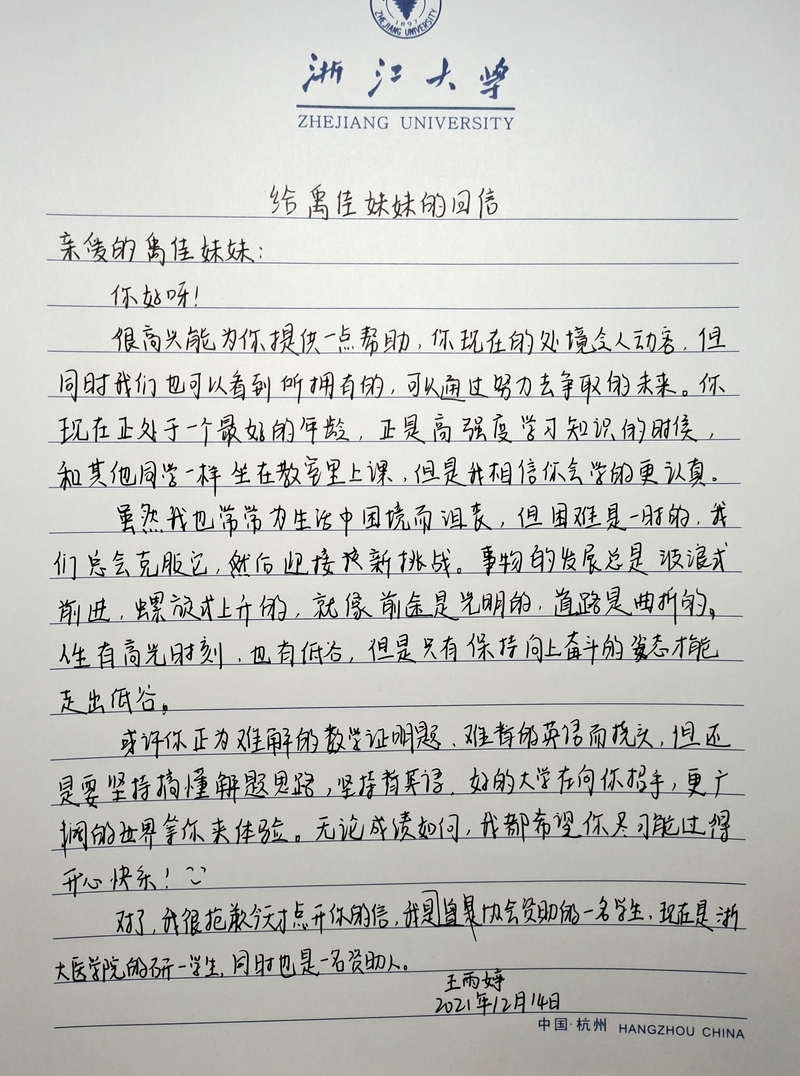 1897
ZHEJIANG UNIVERSITY
浙江大学
ZHEJIANG UNIVERSITY
给禹佳妹妹的回信
亲爱的禹佳妹妹：
你好呀！
很高兴能为你提供一点帮助，你现在的处境令人动容，但
同时我们也可以看到所拥有的，可以通过努力去争取的未来。你
现在正处于一个最好的年龄，正是高强度学习知识的时侯，
和其他同学一样坐在教室里上课，但是我相信你会学的更认真。
虽然我也常常为生活中困境而沮丧，但困难是一时的，我
们总会克服它，然后迎接新挑战。事物的发展总是波浪式
前进，螺旋式上升的，就像前途是光明的，道路是曲折的。
人生有高光时刻，也有低谷，但是只有保持向上奋斗的姿态才能
走出低谷。
或许你正为难解的数学证明题、难背的英语而挠头，但还
是要坚持搞懂解题思路，坚持背英语，好的大学在向你招手，更广
阔的世界等你来体验。无论成绩如何，我都希望你尽可能过得
开心快乐！
对了，我很抱歉今天才点开你的信，我是协会资助的一名学生，现在是浙
大医学院的研一学生，同时也是一名资助人。
王雨婷
2021年12月14日
中国·杭州 HANGZHOU CHINA